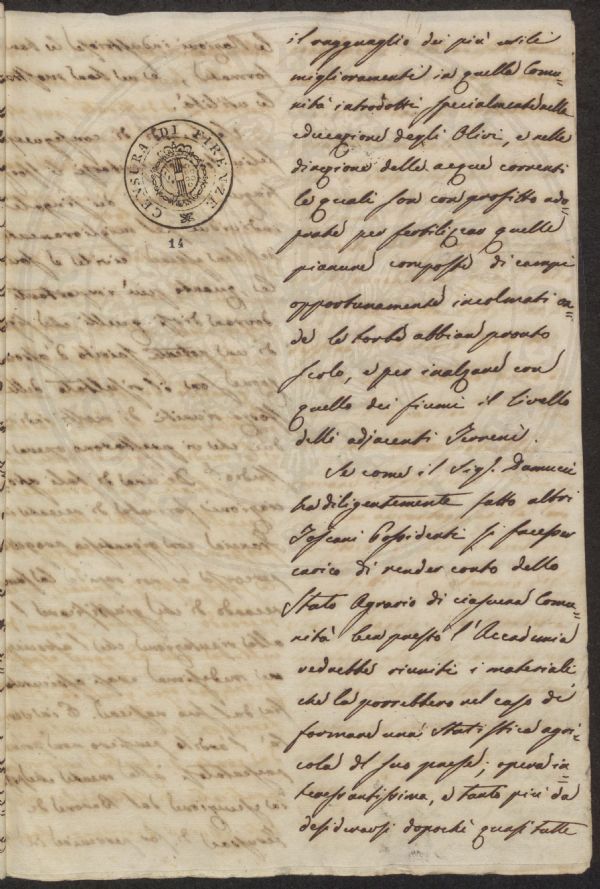 il ragguaglio dei più utili
miglioramenti in quella Comu=
nità introdotti specialmente nella
educazione degli Olivi, e nella
direzione delle acque correnti
le quali son con profitto ado=
prate per fertilizzar quelle
pianure composte di campi
opportunamente incolmati on=
de le torbe abbian pronto
scolo, e per inalzare con
quello dei fiumi il livello
delli adjacenti Terreni.
Se come il Sigr. Damucci
ha diligentemente fatto altri
Toscani Possidenti si facesser
carico di render conto dello
Stato Agrario di ciascuna Comu=
nità ben presto l'Accademia
vedrebbe riuniti i materiali,
che la porrebbero nel caso di
formare una Statistica agri=
cola del suo paese; opera in=
teressantissima, e tanto più da
desiderarsi dopochè quasi tutte
CENSURA DI FIRENZE
14